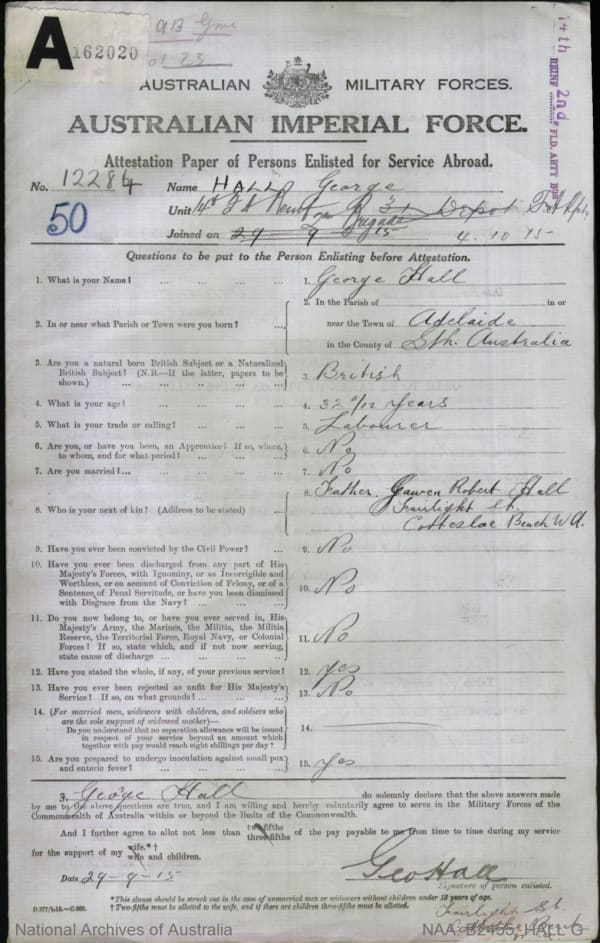 A 162020
AUSTRALIAN MILITARY FORCES.
AUSTRALIAN IMPERIAL FORCE.
14th 2nd. FLD. ARTY BDE
REINF
Attestation Paper of Persons Enlisted for Service Abroad.
No. 12284 Name HALL George
50
Unit Depot
Brigade
Joined on 29 9 15 4.10.15
Questions to be put to the Person Enlisting before Attestation.
1. What is your Name? ... ... ... 1. George Hall
2. In or near what Parish or Town were you born? ... 2. In the Parish of in or
near the Town of Adelaide
in the County of Sth. Australia
3. Are you a natural born British Subject or a Naturalized
British Subject? (N.B.—If the latter, papers to be
shown.) ... ... ... ... 3. British
4. What is your age? ... ... ... 4. 32 /12 years
5. What is your trade or calling? ... ... 5. Labourer
6. Are you, or have you been, an Apprentice? If so, where,
to whom, and for what period? ... ... 6. No
7. Are you married?... ... ... ... 7. No
8. Who is your next of kin? (Address to be stated) ... 8. Father. Gawen Robert Hall
Fairlight St.
Cottesloe Beach W.A.
9. Have you ever been convicted by the Civil Power? ... 9. No
10. Have you ever been discharged from any part of His
Majesty's Forces, with Ignominy, or as Incorrigible and
Worthless, or on account of Conviction of Felony, or of a
Sentence of Penal Servitude, or have you been dismissed
with Disgrace from the Navy? ... ... ... 10. No
11. Do you now belong to, or have you ever served in, His
Majesty's Army, the Marines, the Militia, the Militia
Reserve, the Territorial Force, Royal Navy, or Colonial
Forces? If so, state which, and if not now serving,
state cause of discharge ... ... ... ... 11. No
12. Have you stated the whole, if any, of your previous service? 12. Yes
13. Have you ever been rejected as unfit for His Majesty's
Service? If so, on what grounds? ... ... 13. No
14. (For married men, widowers with children, and soldiers who
are the sole support of widowed mother)—
Do you understand that no separation allowance will be issued
in respect of your service beyond an amount which
together with pay would reach eight shillings per day? ... 14.
15. Are you prepared to undergo inoculation against small pox
and enteric fever? ... ... ... ... 15. Yes
I, George Hall do solemnly declare that the above answers made
by me to the above questions are true, and I am willing and hereby voluntarily agree to serve in the Military Forces of the
Commonwealth of Australia within or beyond the limits of the Commonwealth.
And I further agree to allot not less than two-fifths three-fifths of the pay payable to me from time to time during my service
for the support of my wife.*† wife and children.
Date 29-9-15 Geo Hall
Signature of person enlisted.
*This clause should be struck out in the case of unmarried men or widowers without children under 18 years of age.
† Two-fifths must be allotted to the wife, and if there are children three-fifths must be allotted.
Fairlight St.
National Archives of Australia NAA: B2455, HALL G